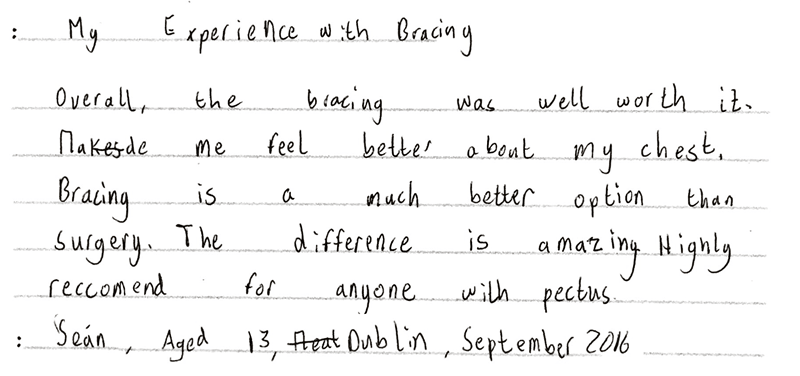 : My Experience with Bracing
Overall, the bracing was well worth it.
Made me feel better about my chest.
Bracing is a much better option than
surgery. The difference is amazing Highly
reccomend for anyone with pectus.
: Seán, Aged 13, Dublin, September 2016